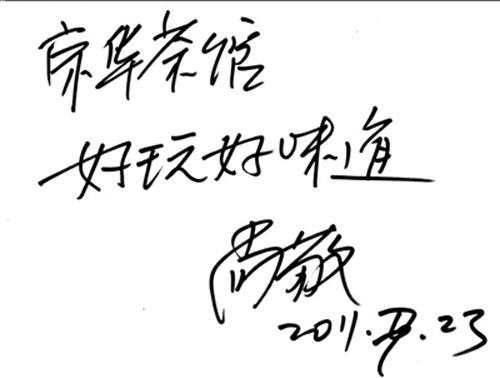 京华茶馆
好玩好味道
尚敬
2011.9.23